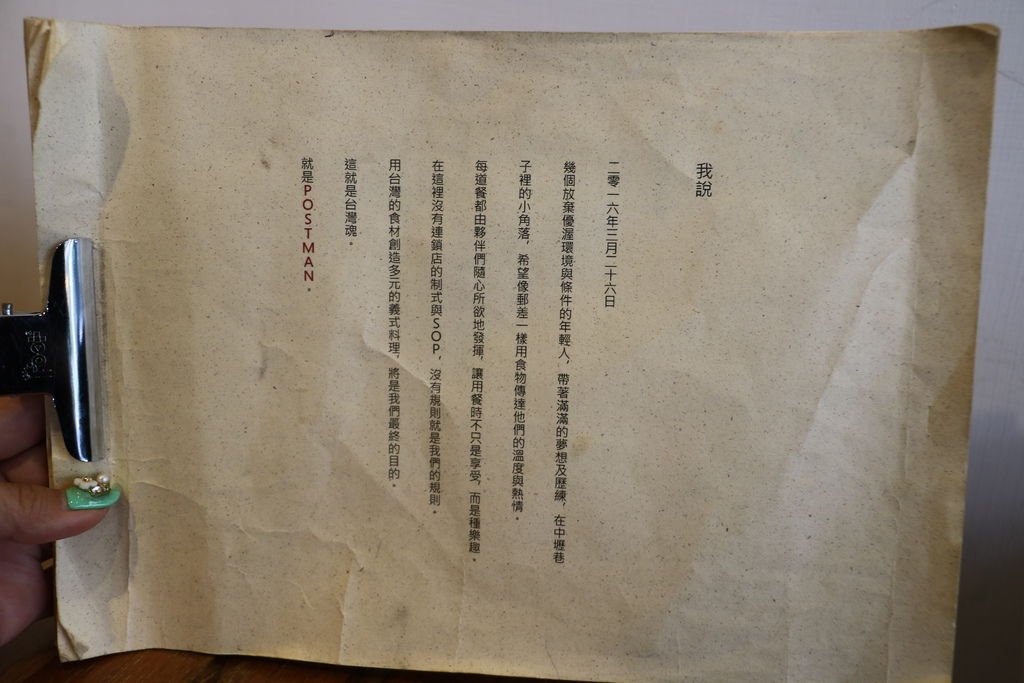 我說
二零一六年三月二十六日
幾個放棄優渥環境與條件的年輕人，帶著滿滿的夢想及歷練，在中壢巷
子裡的小角落，希望像郵差一樣用食物傳達他們的溫度與熱情。
每道餐都由夥伴們隨心所欲地發揮，讓用餐時不只是享受，而是種樂趣。
在這裡沒有連鎖店的制式與SOP，沒有規則就是我們的規則。
用台灣的食材創造多元的義式料理，將是我們最終的目的。
這就是台灣魂。
就是POSTMAN。